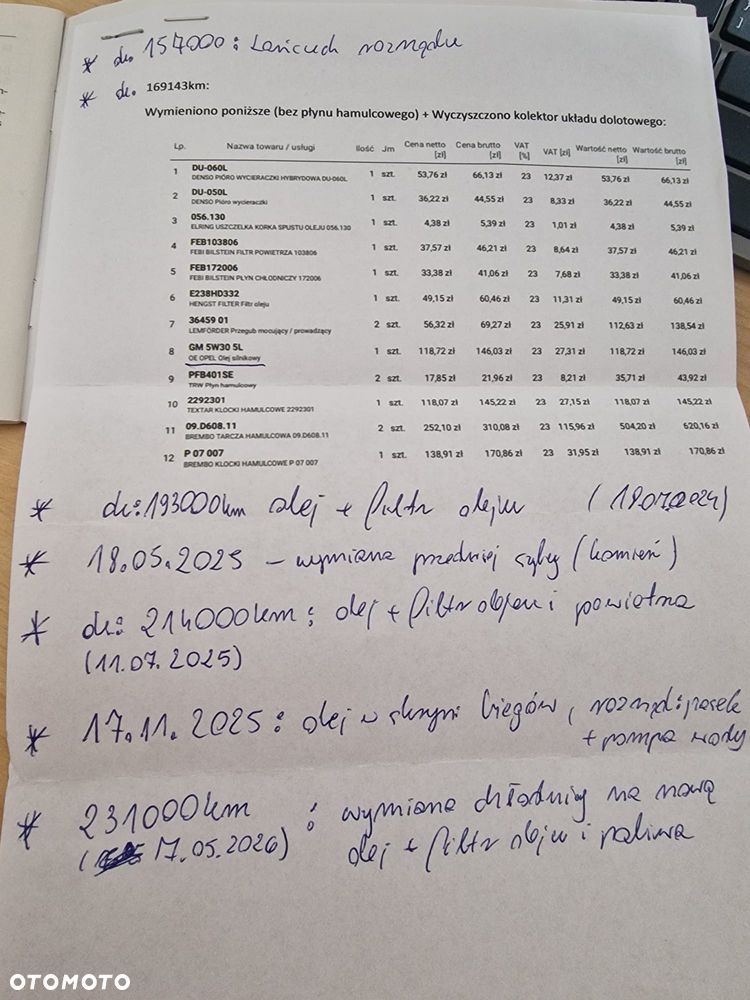 * dn. 157000: Łańcuch rozrządu
* dn. 169143km:
Wymieniono poniższe (bez płynu hamulcowego) + Wyczyszczono kolektor układu dolotowego:
Lp. Nazwa towaru / usługi Ilość Jm Cena netto [zł] Cena brutto [zł] VAT [%] VAT [zł] Wartość netto [zł] Wartość brutto [zł]
1 DU-060L 1 szt. 53,76 zł 66,13 zł 23 12,37 zł 53,76 zł 66,13 zł
DENSO PIÓRO WYCIERACZKI HYBRYDOWA DU-060L
2 DU-050L 1 szt. 36,22 zł 44,55 zł 23 8,33 zł 36,22 zł 44,55 zł
DENSO Pióro wycieraczki
3 056.130 1 szt. 4,38 zł 5,39 zł 23 1,01 zł 4,38 zł 5,39 zł
ELRING USZCZELKA KORKA SPUSTU OLEJU 056.130
4 FEB103806 1 szt. 37,57 zł 46,21 zł 23 8,64 zł 37,57 zł 46,21 zł
FEBI BILSTEIN FILTR POWIETRZA 103806
5 FEB172006 1 szt. 33,38 zł 41,06 zł 23 7,68 zł 33,38 zł 41,06 zł
FEBI BILSTEIN PŁYN CHŁODNICZY 172006
6 E238HD332 1 szt. 49,15 zł 60,46 zł 23 11,31 zł 49,15 zł 60,46 zł
HENGST FILTER Filtr oleju
7 36459 01 2 szt. 56,32 zł 69,27 zł 23 25,91 zł 112,63 zł 138,54 zł
LEMFÖRDER Przegub mocujący / prowadzący
8 GM 5W30 5L 1 szt. 118,72 zł 146,03 zł 23 27,31 zł 118,72 zł 146,03 zł
OE OPEL Olej silnikowy
9 PFB401SE 2 szt. 17,85 zł 21,96 zł 23 8,21 zł 35,71 zł 43,92 zł
TRW Płyn hamulcowy
10 2292301 1 szt. 118,07 zł 145,22 zł 23 27,15 zł 118,07 zł 145,22 zł
TEXTAR KLOCKI HAMULCOWE 2292301
11 09.D608.11 2 szt. 252,10 zł 310,08 zł 23 115,96 zł 504,20 zł 620,16 zł
BREMBO TARCZA HAMULCOWA 09.D608.11
12 P 07 007 1 szt. 138,91 zł 170,86 zł 23 31,95 zł 138,91 zł 170,86 zł
BREMBO KLOCKI HAMULCOWE P 07 007
* dn: 193000km olej + filtr oleju
* 18.05.2025 – wymiana przedniej szyby (kamień)
* dn: 214000km: olej + filtr oleju i powietrza
(11.07.2025)
* 17.11.2025: olej w skrzyni biegów, rozrząd: pasek
+ pompa wody
* 231000km : wymiana chłodnicy na nową
(17.05.2026) olej + filtr oleju i paliwa
OTOMOTO